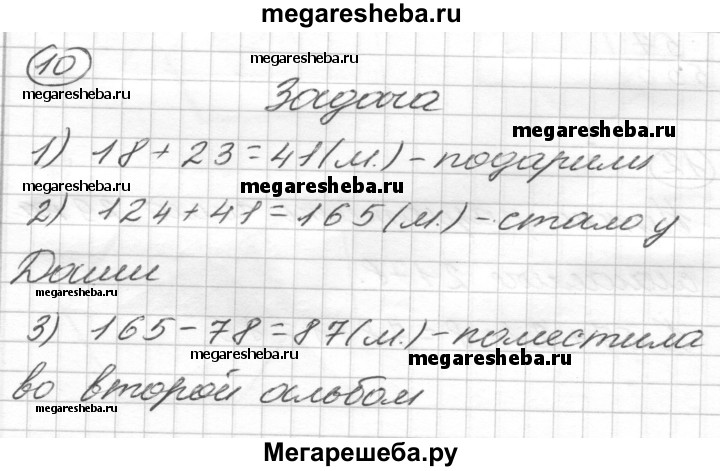 megaresheba.ru
10
megaresheba.ru
megaresheba.ru
Задача
megaresheba.ru
1) 18+23=41(м.)-подарили
megaresheba.ru
2) 124+41=165(м.)-стало у
Даши
megaresheba.ru
3) 165-78=87(м.)-поместила
megaresheba.ru
megaresheba.ru
во второй альбом
megaresheba.ru
Мегарешеба.ру